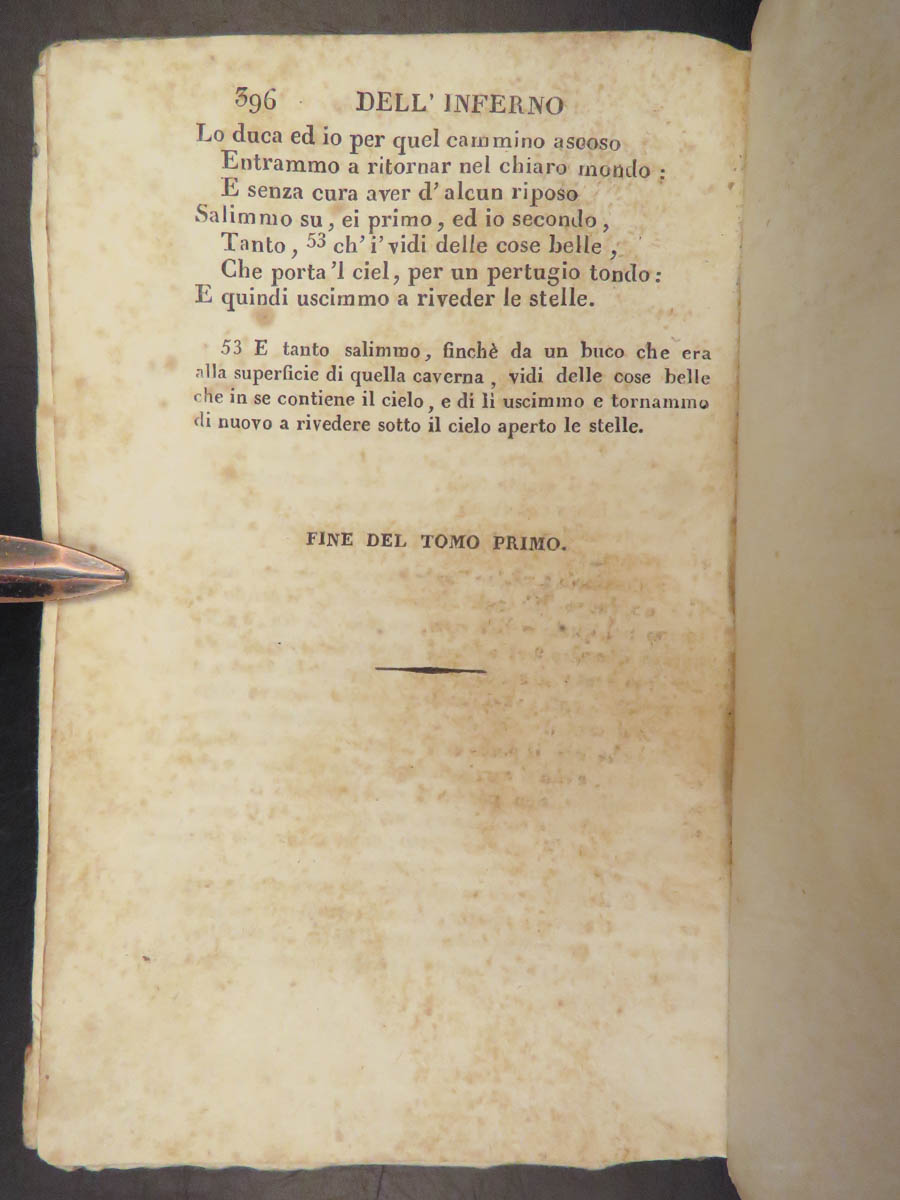 396 DELL' INFERNO
Lo duca ed io per quel cammino ascoso
Entrammo a ritornar nel chiaro mondo :
E senza cura aver d' alcun riposo
Salimmo su, ei primo, ed io secondo ,
Tanto, 53 ch' i' vidi delle cose belle ,
Che porta 'l ciel, per un pertugio tondo :
E quindi uscimmo a riveder le stelle.
53 E tanto salimmo, finchè da un buco che era
alla superficie di quella caverna , vidi delle cose belle
che in se contiene il cielo, e di lì uscimmo e tornammo
di nuovo a rivedere sotto il cielo aperto le stelle.
FINE DEL TOMO PRIMO.